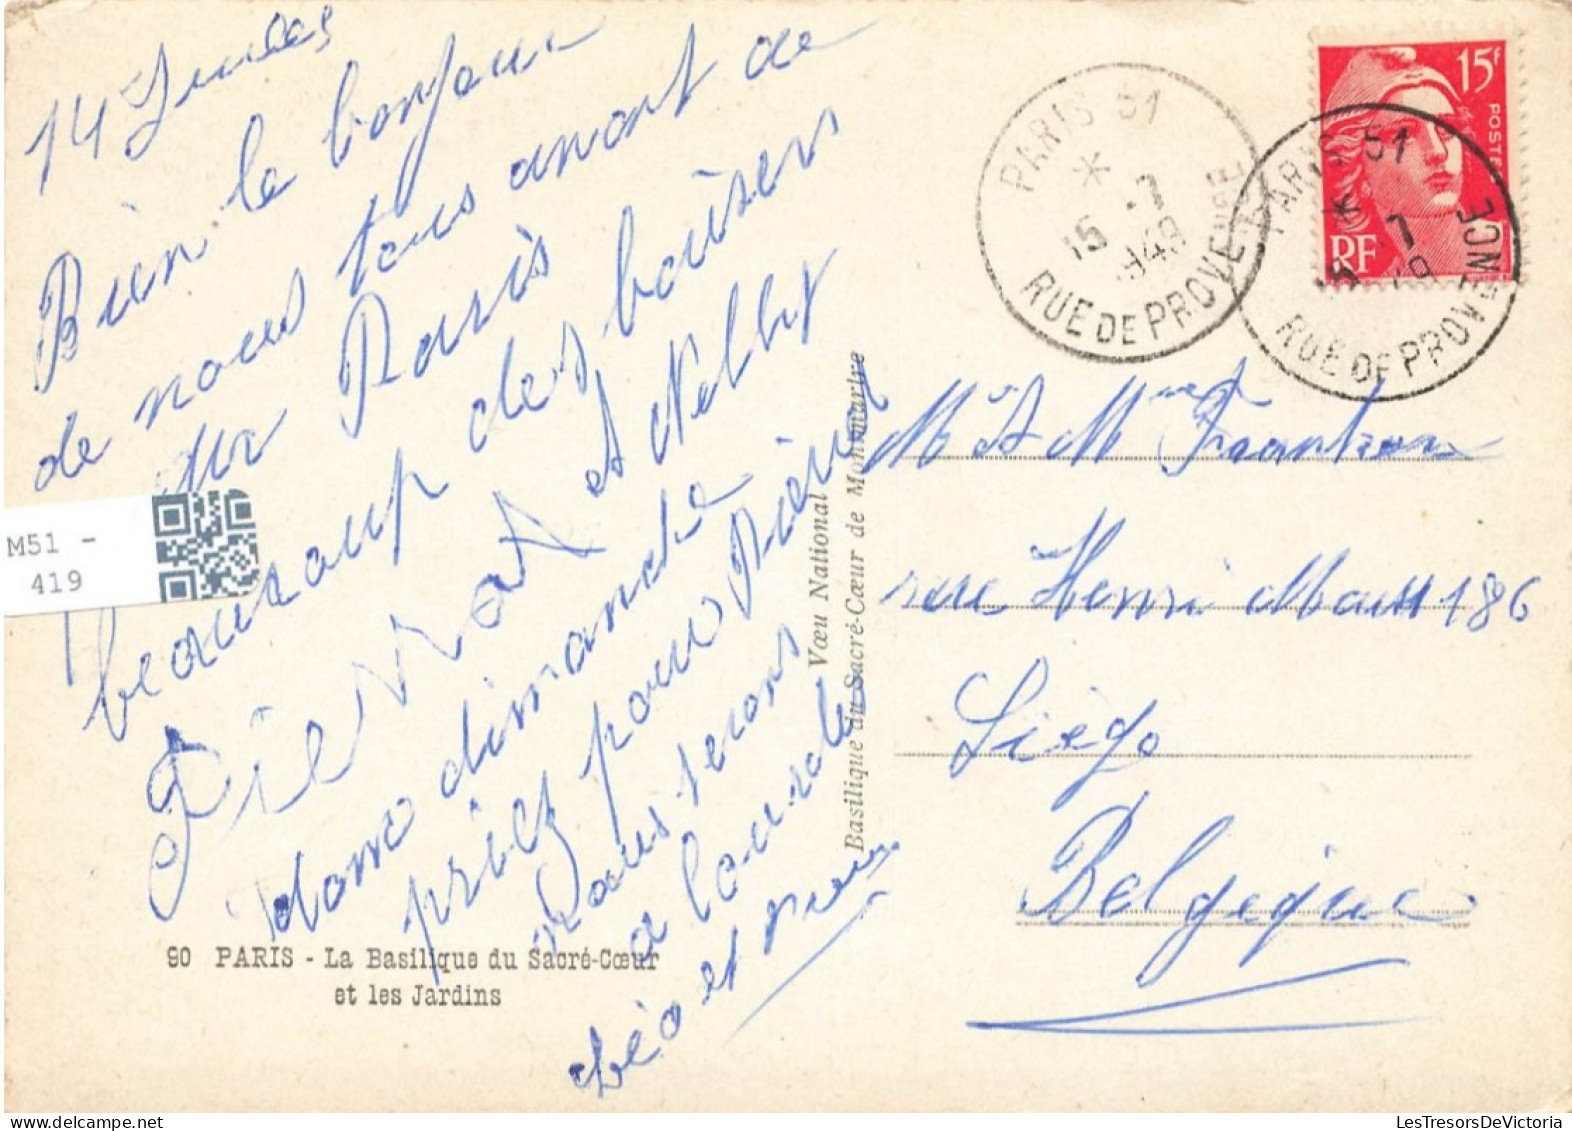 14 Juillet
Bien le bonjour
de nous tous avant de
Paris
beaucoup des baisers
et Nelly
Pierrot
dimanche
priez pour Pierre
Nous serons
a Lourdes
Léo et Pierre
M51 -
419
90 PARIS - La Basilique du Sacré-Cœur
et les Jardins
Vœu National
Basilique du Sacré-Cœur de Montmartre
PARIS 51
15 -7
1949
RUE DE PROVENCE
PARIS 51
15 -7
1949
RUE DE PROVENCE
15F
POSTES
RF
Mr et Mme Frantzen
rue Henri Maus 186
Liége
Belgique
LesTresorsDeVictoria